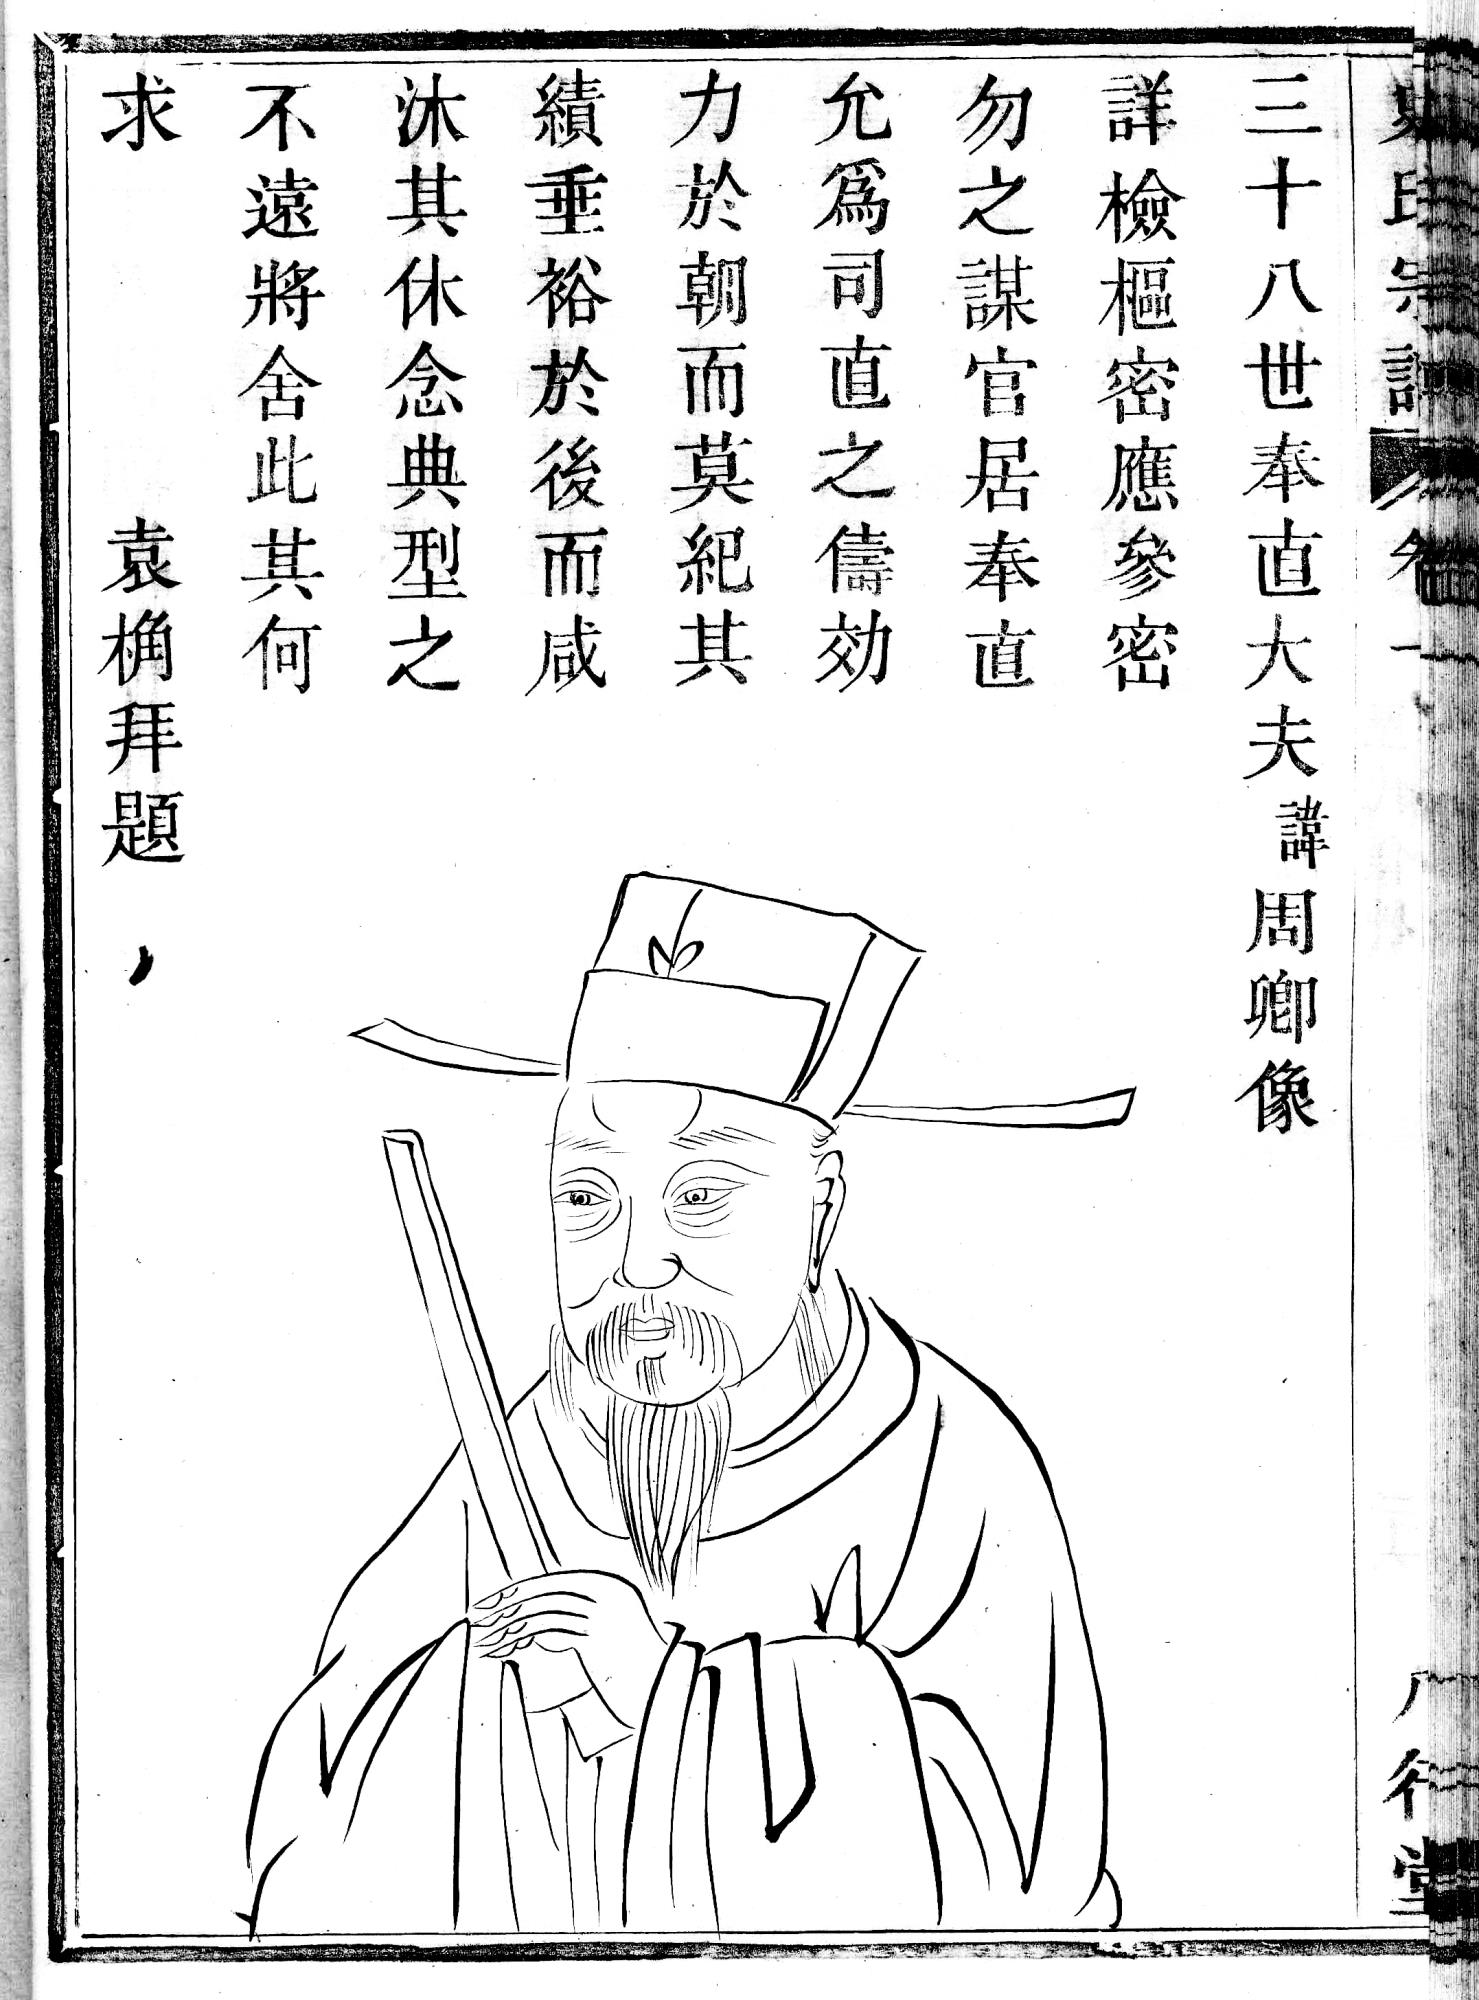 三十八世奉直大夫諱周卿像
詳檢樞密應參密
勿之謀官居奉直
允爲司直之儔効
力於朝而莫紀其
績垂裕於後而咸
沐其休念典型之
不遠將舍此其何
求 袁桷拜題
史氏宗譜 卷一 八行堂